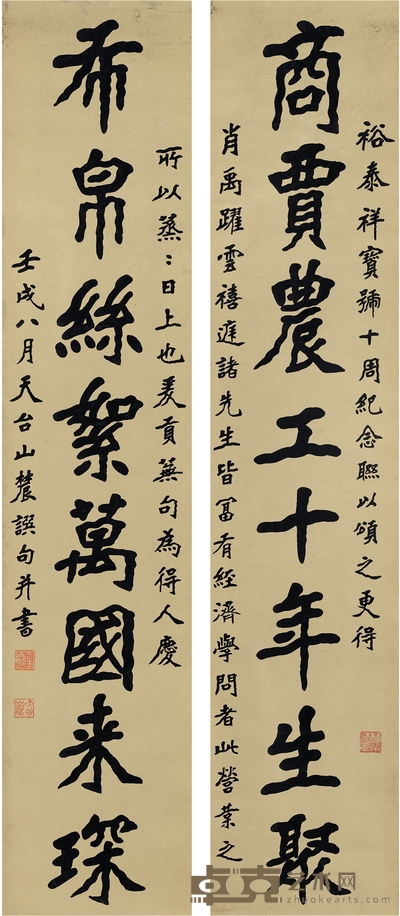 裕泰祥寶號十周紀念聯以頌之更得
商賈農工十年生聚
肖禹躍雲禧進諸先生皆富有經濟學問者此營業之
所以蒸：日上也爰貢蕪句為得人慶
布帛絲絮萬國来琛
壬戌八月天台山農譔句并書
卓克艺术网
zhuokearts.com